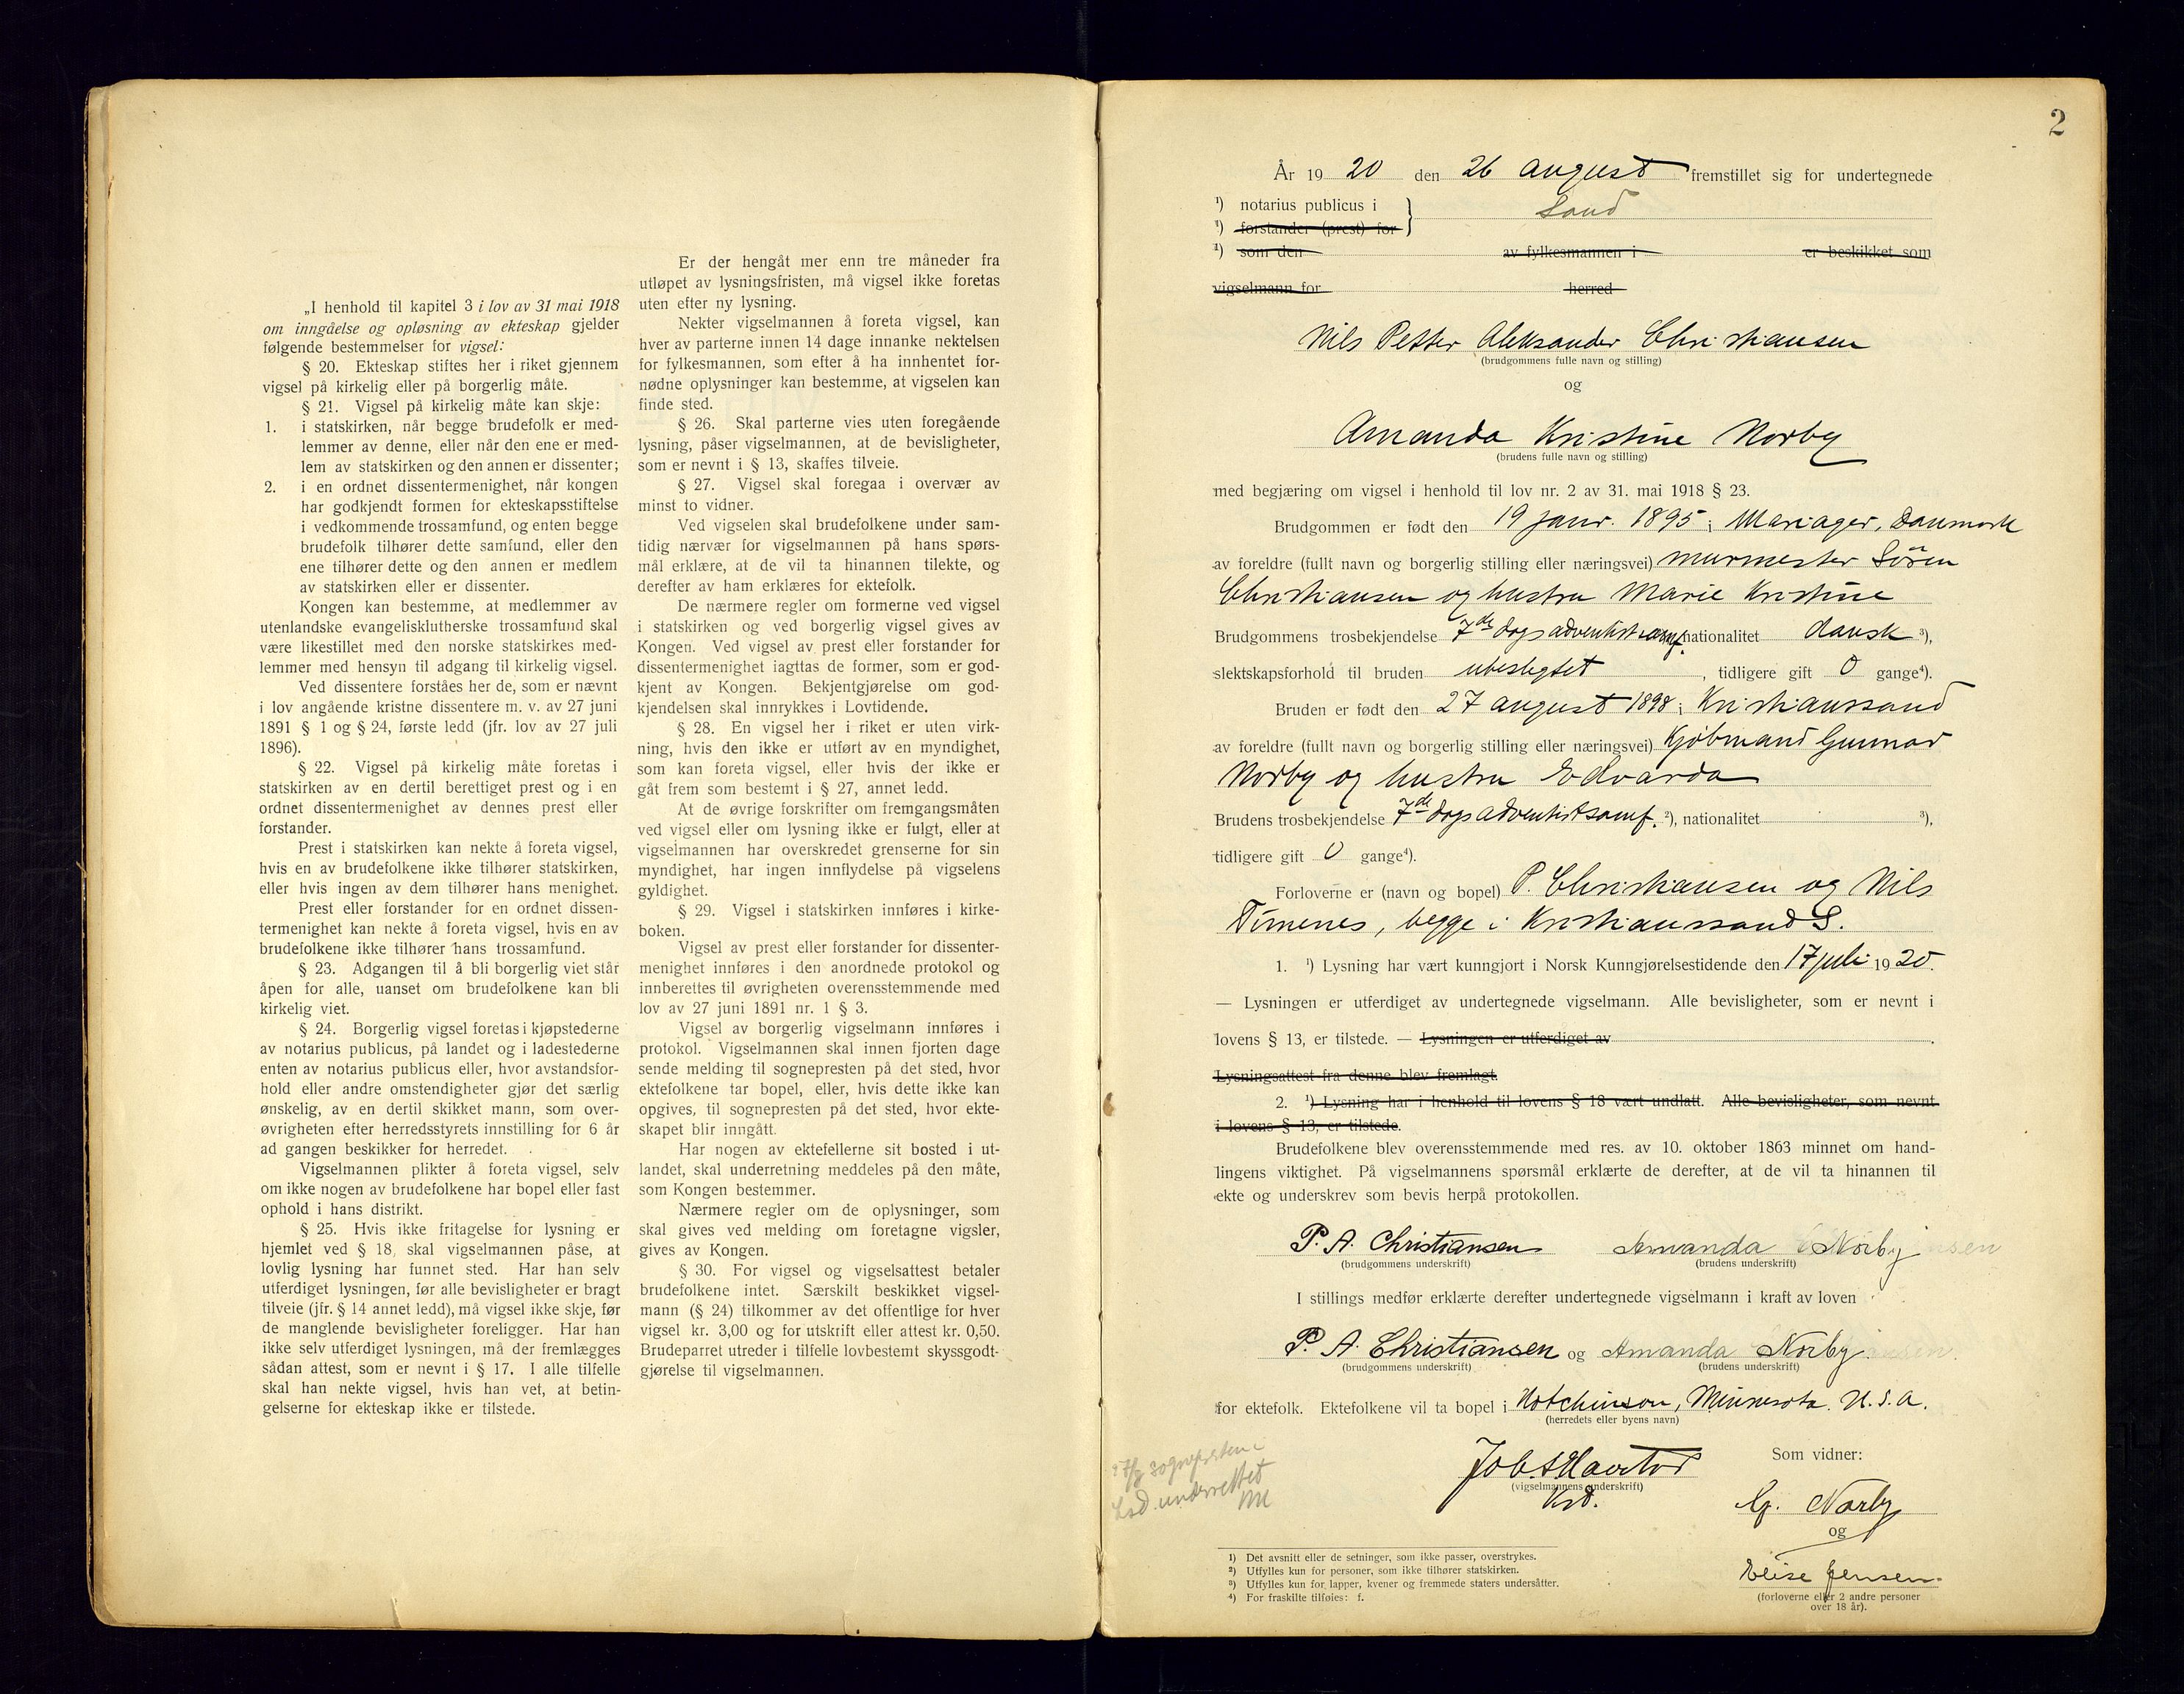 „I henhold til kapitel 3 i lov av 31 mai 1918
om inngåelse og opløsning av ekteskap gjelder
følgende bestemmelser for vigsel:
§ 20. Ekteskap stiftes her i riket gjennem
vigsel på kirkelig eller på borgerlig måte.
§ 21. Vigsel på kirkelig måte kan skje:
1. i statskirken, når begge brudefolk er med-
lemmer av denne, eller når den ene er med-
lem av statskirken og den annen er dissenter;
2. i en ordnet dissentermenighet, når kongen
har godkjendt formen for ekteskapsstiftelse
i vedkommende trossamfund, og enten begge
brudefolk tilhører dette samfund, eller den
ene tilhører dette og den annen er medlem
av statskirken eller er dissenter.
Kongen kan bestemme, at medlemmer av
utenlandske evangelisklutherske trossamfund skal
være likestillet med den norske statskirkes med-
lemmer med hensyn til adgang til kirkelig vigsel.
Ved dissentere forståes her de, som er nævnt
i lov angående kristne dissentere m. v. av 27 juni
1891 § 1 og § 24, første ledd (jfr. lov av 27 juli
1896).
§ 22. Vigsel på kirkelig måte foretas i
statskirken av en dertil berettiget prest og i en
ordnet dissentermenighet av dennes prest eller
forstander.
Prest i statskirken kan nekte å foreta vigsel,
hvis en av brudefolkene ikke tilhører statskirken,
eller hvis ingen av dem tilhører hans menighet.
Prest eller forstander for en ordnet dissen-
termenighet kan nekte å foreta vigsel, hvis en av
brudefolkene ikke tilhører hans trossamfund.
§ 23. Adgangen til å bli borgerlig viet står
åpen for alle, uanset om brudefolkene kan bli
kirkelig viet.
§ 24. Borgerlig vigsel foretas i kjøpstederne
av notarius publicus, på landet og i ladestederne
enten av notarius publicus eller, hvor avstandsfor-
hold eller andre omstendigheter gjør det særlig
ønskelig, av en dertil skikket mann, som over-
øvrigheten efter herredsstyrets innstilling for 6 år
ad gangen beskikker for herredet.
Vigselmannen plikter å foreta vigsel, selv
om ikke nogen av brudefolkene har bopel eller fast
ophold i hans distrikt.
§ 25. Hvis ikke fritagelse for lysning er
hjemlet ved § 18, skal vigselmannen påse, at
lovlig lysning har funnet sted. Har han selv
utferdiget lysningen, før alle bevisligheter er bragt
tilveie (jfr. § 14 annet ledd), må vigsel ikke skje, før
de manglende bevisligheter foreligger. Har han
ikke selv utferdiget lysningen, må der fremlægges
sådan attest, som er nevnt i § 17. I alle tilfelle
skal han nekte vigsel, hvis han vet, at betin-
gelserne for ekteskap ikke er tilstede.
Er der hengåt mer enn tre måneder fra
utløpet av lysningsfristen, må vigsel ikke foretas
uten efter ny lysning.
Nekter vigselmannen å foreta vigsel, kan
hver av parterne innen 14 dage innanke nektelsen
for fylkesmannen, som efter å ha innhentet for-
nødne oplysninger kan bestemme, at vigselen kan
finde sted.
§ 26. Skal parterne vies uten foregående
lysning, påser vigselmannen, at de bevisligheter,
som er nevnt i § 13, skaffes tilveie.
§ 27. Vigsel skal foregaa i overvær av
minst to vidner.
Ved vigselen skal brudefolkene under sam-
tidig nærvær for vigselmannen på hans spørs-
mål erklære, at de vil ta hinannen tilekte, og
derefter av ham erklæres for ektefolk.
De nærmere regler om formerne ved vigsel
i statskirken og ved borgerlig vigsel gives av
Kongen. Ved vigsel av prest eller forstander for
dissentermenighet iagttas de former, som er god-
kjent av Kongen. Bekjentgjørelse om god-
kjendelsen skal innrykkes i Lovtidende.
§ 28. En vigsel her i riket er uten virk-
ning, hvis den ikke er utført av en myndighet,
som kan foreta vigsel, eller hvis der ikke er
gåt frem som bestemt i § 27, annet ledd.
At de øvrige forskrifter om fremgangsmåten
ved vigsel eller om lysning ikke er fulgt, eller at
vigselmannen har overskredet grenserne for sin
myndighet, har ingen innflydelse på vigselens
gyldighet.
§ 29. Vigsel i statskirken innføres i kirke-
boken.
Vigsel av prest eller forstander for dissenter-
menighet innføres i den anordnede protokol og
innberettes til øvrigheten overensstemmende med
lov av 27 juni 1891 nr. 1 § 3.
Vigsel av borgerlig vigselmann innføres i
protokol. Vigselmannen skal innen fjorten dage
sende melding til sognepresten på det sted, hvor
ektefolkene tar bopel, eller, hvis dette ikke kan
opgives, til sognepresten på det sted, hvor ekte-
skapet blir inngått.
Har nogen av ektefellerne sit bosted i ut-
landet, skal underretning meddeles på den måte,
som Kongen bestemmer.
Nærmere regler om de oplysninger, som
skal gives ved melding om foretagne vigsler,
gives av Kongen.
§ 30. For vigsel og vigselsattest betaler
brudefolkene intet. Særskilt beskikket vigsel-
mann (§ 24) tilkommer av det offentlige for hver
vigsel kr. 3,00 og for utskrift eller attest kr. 0,50.
Brudeparret utreder i tilfelle lovbestemt skyssgodt-
gjørelse til vigselmannen.
2
År 1920 den 26 august fremstillet sig for undertegnede
¹) notarius publicus i Sand
¹) forstander (prest) for
¹) som den av fylkesmannen i er beskikket som
vigselmann for herred
Nils Petter Aleksander Christiansen
(brudgommens fulle navn og stilling)
og
Amanda Kristine Norby
(brudens fulle navn og stilling)
med begjæring om vigsel i henhold til lov nr. 2 av 31. mai 1918 § 23.
Brudgommen er født den 19 janr. 1895 i Mariager, Danmark
av foreldre (fullt navn og borgerlig stilling eller næringsvei) murmester Sören
Christiansen og hustru Marie Kristine
Brudgommens trosbekjendelse 7de dags adventistsamf. nationalitet dansk ³),
slektskapsforhold til bruden ubeslegtet, tidligere gift 0 gange⁴).
Bruden er født den 27 august 1898 i Kristianssand
av foreldre (fullt navn og borgerlig stilling eller næringsvei) Kjøbmand Gunnar
Norby og hustru Edvarda
Brudens trosbekjendelse 7de dags adventistsamf. ²), nationalitet ³),
tidligere gift 0 gange⁴).
Forloverne er (navn og bopel) P. Christiansen og Nils
Timenes, begge i Kristianssand S.
1. ¹) Lysning har vært kunngjort i Norsk Kunngjørelsestidende den 17 juli 1920.
— Lysningen er utferdiget av undertegnede vigselmann. Alle bevisligheter, som er nevnt i
lovens § 13, er tilstede. — Lysningen er utferdiget av .
Lysningsattest fra denne blev fremlagt.
2. ¹) Lysning har i henhold til lovens § 18 vært undlatt. Alle bevisligheter, som nevnt
i lovens § 13, er tilstede.
Brudefolkene blev overensstemmende med res. av 10. oktober 1863 minnet om hand-
lingens viktighet. På vigselmannens spørsmål erklærte de derefter, at de vil ta hinannen til
ekte og underskrev som bevis herpå protokollen.
P. A. Christiansen Amanda Norby
(brudgommens underskrift) (brudens underskrift)
I stillings medfør erklærte derefter undertegnede vigselmann i kraft av loven
P. A. Christiansen og Amanda Norby
(brudgommens underskrift) (brudens underskrift)
for ektefolk. Ektefolkene vil ta bopel i Hotchinson, Minnesota. U.S.A.
(herredets eller byens navn)
sognepresten i
underrettet
Som vidner:
(vigselmannens underskrift)
Kst.
G. Norby
og
Elise Jensen
(forloverne eller 2 andre personer
over 18 år).
¹) Det avsnitt eller de setninger, som ikke passer, overstrykes.
²) Utfylles kun for personer, som ikke tilhører statskirken.
³) Utfylles kun for lapper, kvener og fremmede staters undersåtter.
⁴) For fraskilte tilføies: f.